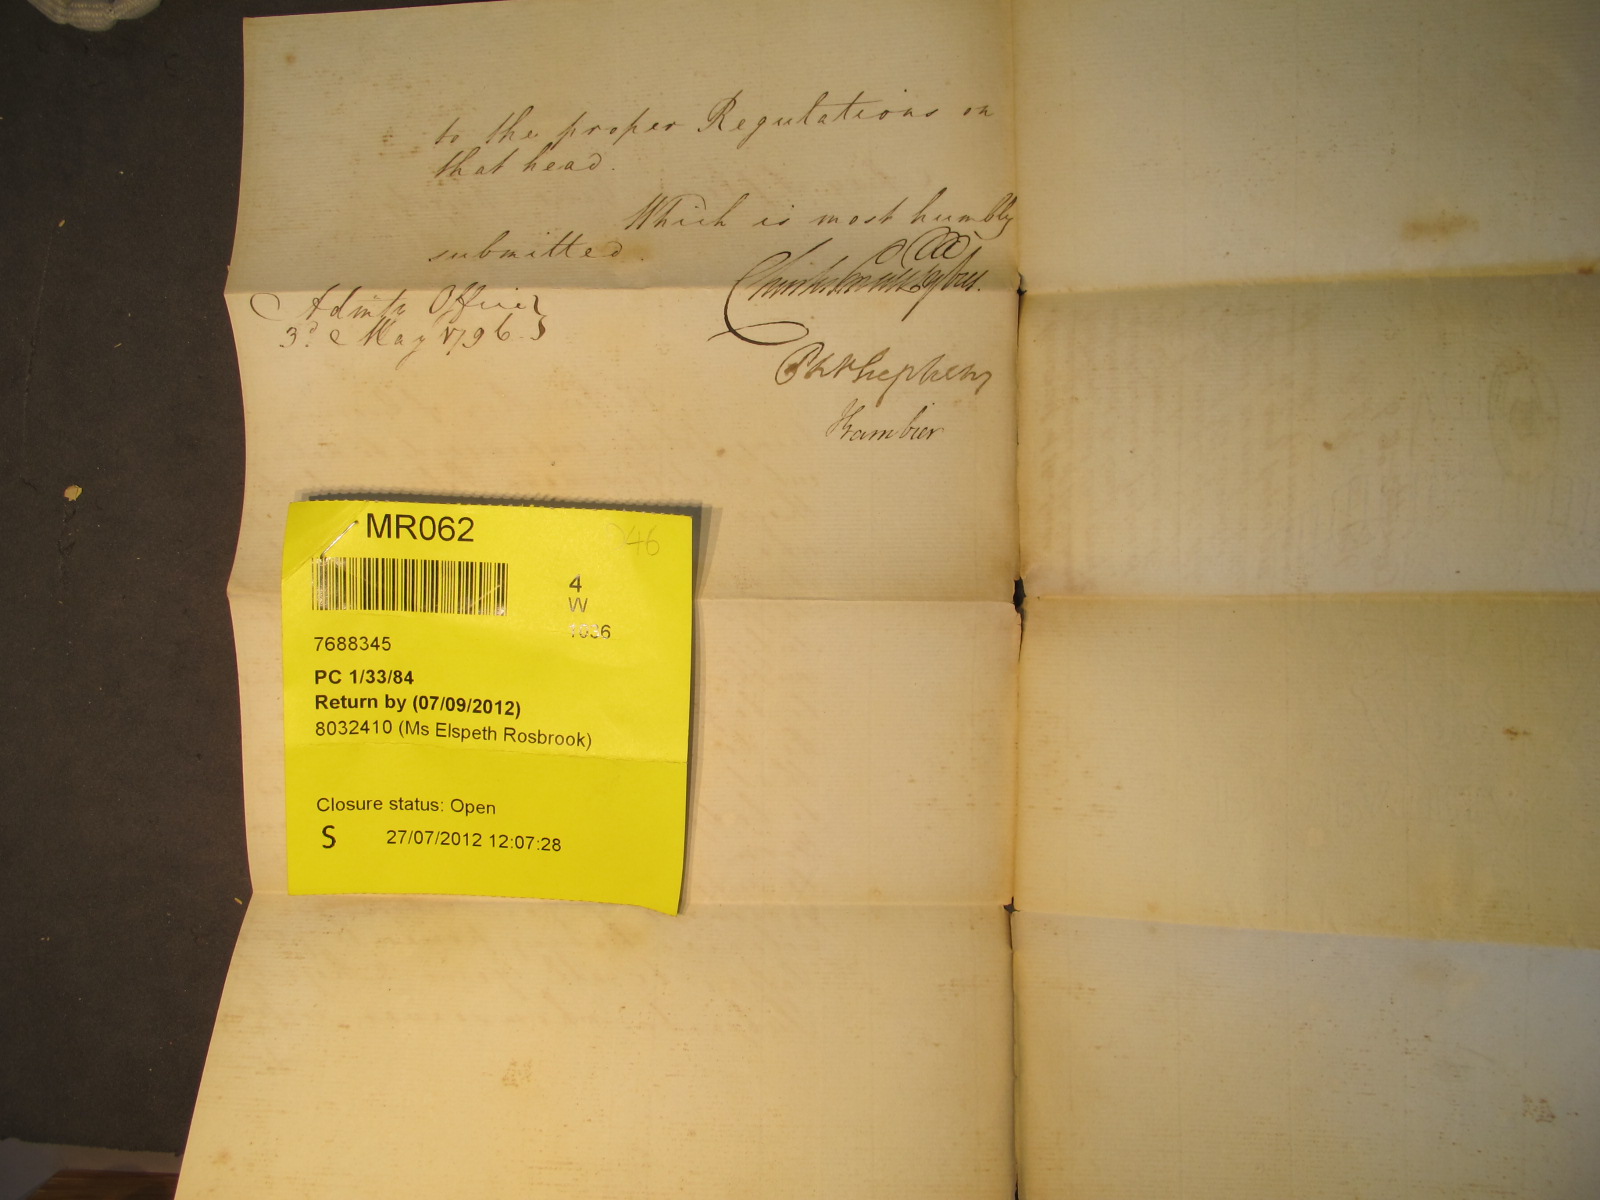 to the proper Regulations on
that head.
Which is most humbly
submitted.
Admty Office
3d May 1796.
Ph Stephens
Gambier
MR062
46
4
W
1036
7688345
PC 1/33/84
Return by (07/09/2012)
8032410 (Ms Elspeth Rosbrook)
Closure status: Open
S 27/07/2012 12:07:28